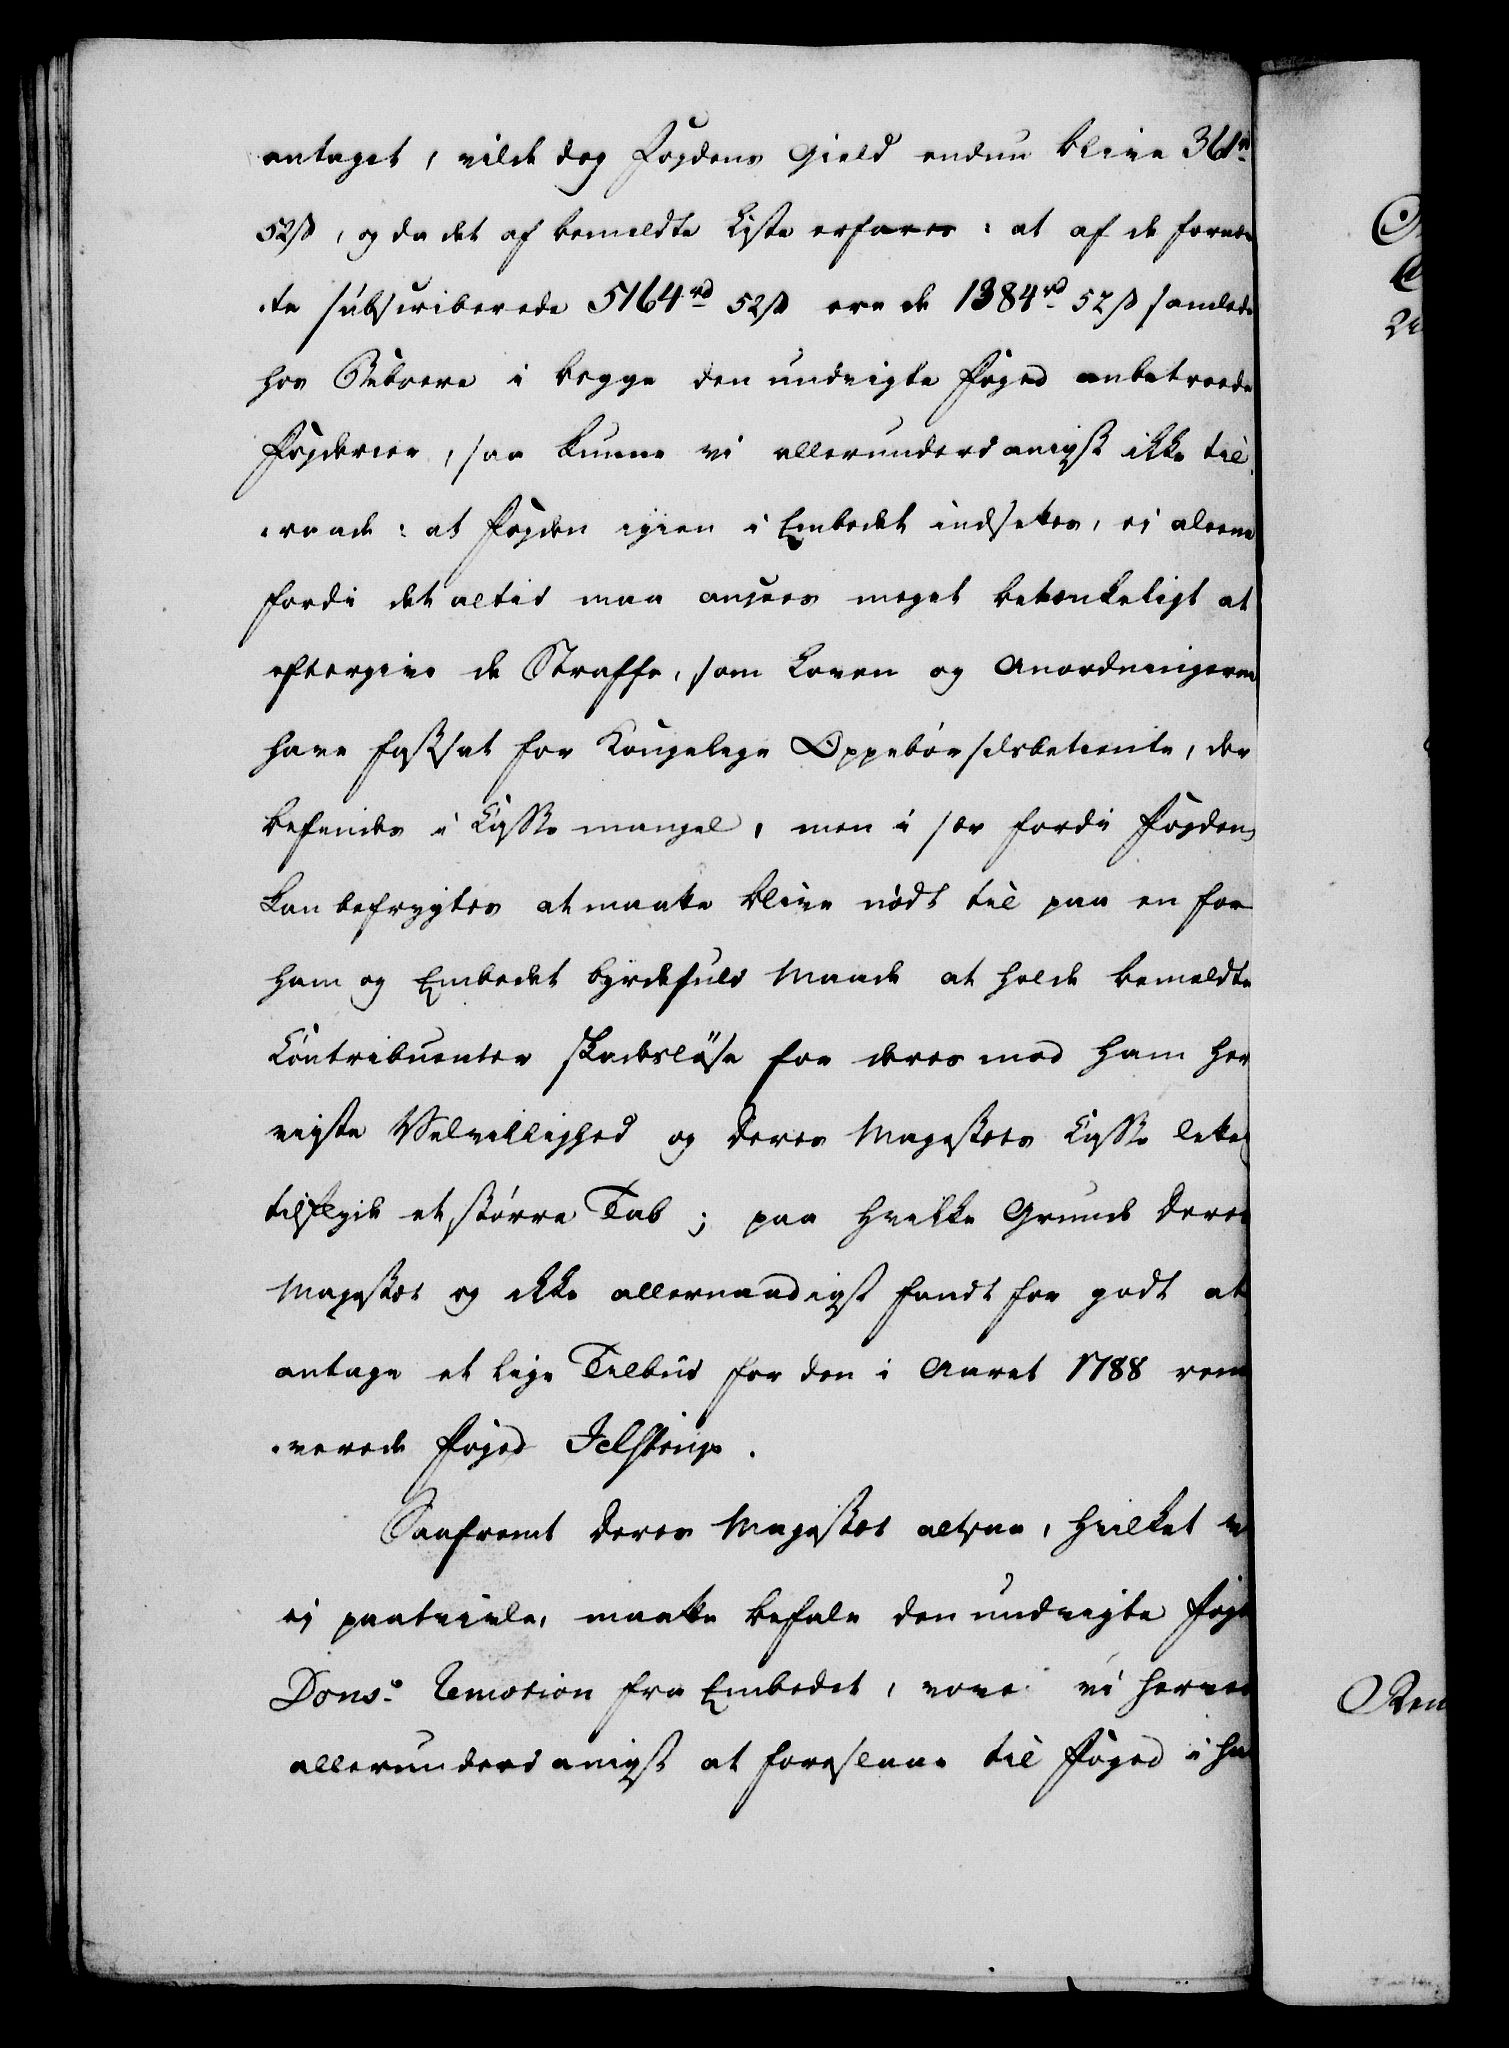 antaget, vilde dog Fogdens Gield endnu blive 361rd
52ß, og da det af bemeldte Liste erfares: at af de fornæv
-te subscriberede 5164rd 52ß ere de 1384rd 52ß samlede
hos Beboere i begge den undvigte Foged anbetroede
Fogderier, saa kunne vi allerunderdanigst ikke til-
-raade: at Fogden igien i Embedet indsettes, ej aleene
fordi det altid maa ansees meget betænkeligt at
eftergive de Straffe, som Loven og Anordningerne
have fastsat for Kongelige Oppebørselsbetiente, der
befindes i Casse mangel, men i sær fordi Fogden
kan befrygtes at maatte blive nødt til paa en for
ham og Embedet byrdefuld Maade at holde bemeldte
Contribuenter skadesløse for deres mod ham her
viiste Velvillighed og Deres Majestets Casse lettel
tilføyede et større Tab; paa hvilke Grunde Deres
Majestæt og ikke allernaadigst fandt for godt at
antage et lige Tilbud for den i Aaret 1788 remo
-verede Foged Jelstrup.
Saafremt Deres Majestæt altsaa, hvilket vi
ej paatvivle, maatte befale den undvigte Foged
Dons's Remotion fra Embedet, vove vi herved
allerunderdanigst at foreslaae til Foged i ha
Ren